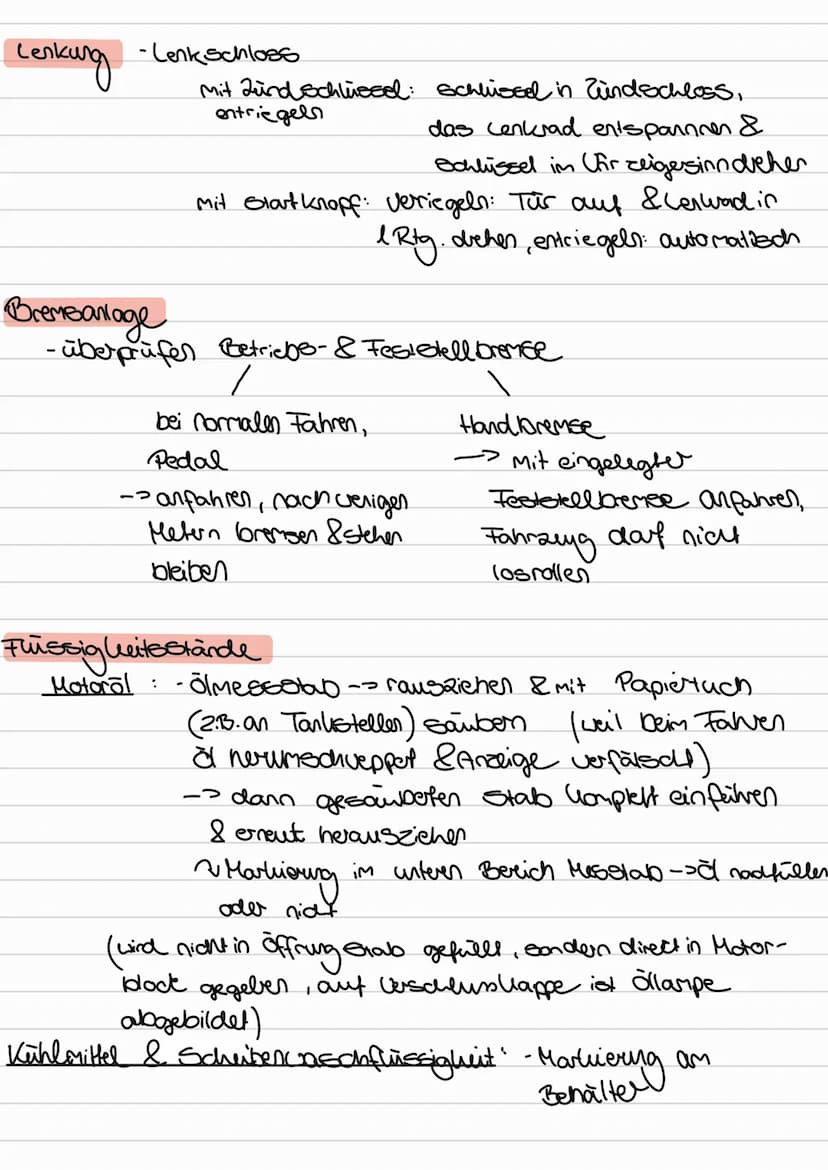 Lenkung - Lenkschloss
Mit Zündschlüssel: Schlüssel in Zündschloss,
entriegeln
das Lenkrad entspannen &
Schlüssel im Uhrzeigersinn drehen
Mit Startknopf: Verriegeln: Tür auf & Lenkrad in
1 Rtg. drehen, entriegeln: automatisch
Bremsanlage
- überprüfen Betriebs- & Feststellbremse
bei normalen Fahren, Handbremse
Pedal -> Mit eingelegter
-> anfahren, nach wenigen Feststellbremse anfahren,
Metern bremsen & stehen Fahrzeug darf nicht
bleiben losrollen
Flüssigkeitsstände
Motoröl : - Ölmessstab -> rausziehen & mit Papiertuch
(z.B. an Tankstellen) säubern (weil beim Fahren
Öl herumschwappt & Anzeige verfälscht)
-> dann gesäuberten Stab komplett einführen
& erneut herausziehen
~ Markierung im unteren Bereich Messstab -> Öl nachfüllen
oder nicht
(wird nicht in Öffnung Stab gefüllt, sondern direkt in Motor-
block gegeben, auf Verschlusskappe ist Öllampe
abgebildet)
Kühlmittel & Scheibenwaschflüssigkeit: - Markierung am
Behälter